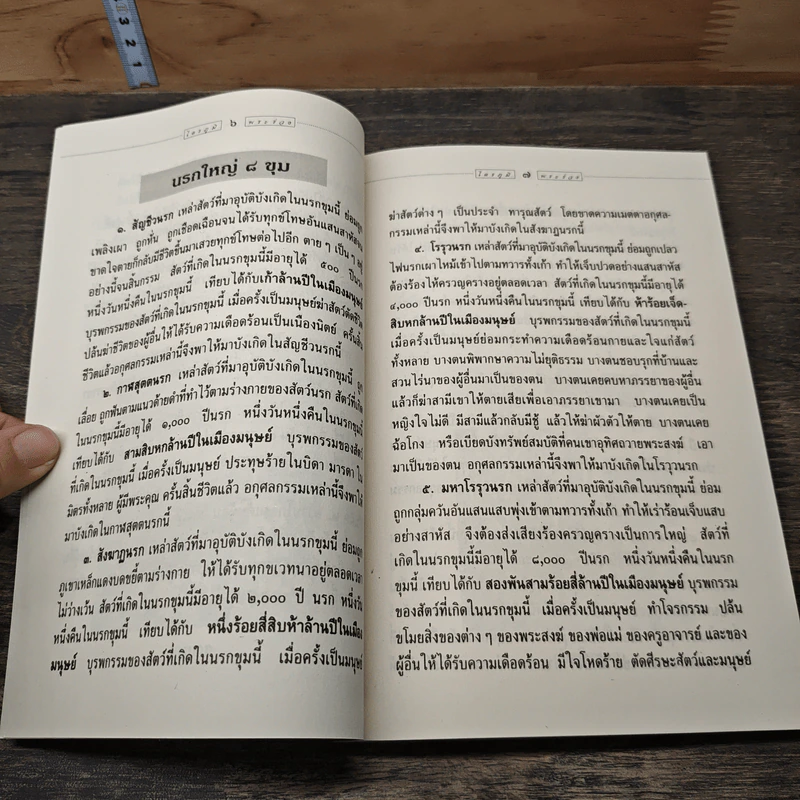 ไตรภูมิ ๖ พระร่วง
นรกใหญ่ ๘ ขุม
๑. สัญชีวนรก เหล่าสัตว์ที่มาอุบัติบังเกิดในนรกขุมนี้ ย่อมถูก
เพลิงเผา ถูกหั่น ถูกเชือดเฉือนจนได้รับทุกข์โทษอันแสนสาหัสจน
ขาดใจตายก็กลับมีชีวิตขึ้นมาเสวยทุกข์โทษต่อไปอีก ตาย ๆ เป็น ๆ อยู่
อย่างนี้จนสิ้นกรรม สัตว์ที่เกิดในนรกขุมนี้มีอายุได้ ๕๐๐ ปีนรก
หนึ่งวันหนึ่งคืนในนรกขุมนี้ เทียบได้กับเก้าล้านปีในเมืองมนุษย์
บุรพกรรมของสัตว์ที่เกิดในนรกขุมนี้ เมื่อครั้งเป็นมนุษย์ฆ่าสัตว์ตัดชีวิต
ปล้นฆ่าชีวิตของผู้อื่นให้ได้รับความเดือดร้อนเป็นเนืองนิตย์ ครั้นสิ้น
ชีวิตแล้วอกุศลกรรมเหล่านี้จึงพาให้มาบังเกิดในสัญชีวนรกนี้
๒. กาฬสุตตนรก เหล่าสัตว์ที่มาอุบัติบังเกิดในนรกขุมนี้ ถูก
เลื่อย ถูกฟันตามแนวด้ายดำที่ทำไว้ตามร่างกายของสัตว์นรก สัตว์ที่เกิด
ในนรกขุมนี้มีอายุได้ ๑,๐๐๐ ปีนรก หนึ่งวันหนึ่งคืนในนรกขุมนี้
เทียบได้กับ สามสิบหกล้านปีในเมืองมนุษย์ บุรพกรรมของสัตว์
ที่เกิดในนรกขุมนี้ เมื่อครั้งเป็นมนุษย์ ประทุษร้ายในบิดา มารดา ใน
มิตรทั้งหลาย ผู้มีพระคุณ ครั้นสิ้นชีวิตแล้ว อกุศลกรรมเหล่านี้จึงพาให้
มาบังเกิดในกาฬสุตตนรกนี้
๓. สังฆาฏนรก เหล่าสัตว์ที่มาอุบัติบังเกิดในนรกขุมนี้ ย่อมถูก
ภูเขาเหล็กแดงบดขยี้ตามร่างกาย ให้ได้รับทุกขเวทนาอยู่ตลอดเวลา
ไม่ว่างเว้น สัตว์ที่เกิดในนรกขุมนี้มีอายุได้ ๒,๐๐๐ ปี นรก หนึ่งวัน
หนึ่งคืนในนรกขุมนี้ เทียบได้กับ หนึ่งร้อยสี่สิบห้าล้านปีในเมือง
มนุษย์ บุรพกรรมของสัตว์ที่เกิดในนรกขุมนี้ เมื่อครั้งเป็นมนุษย์
ไตรภูมิ ๗ พระร่วง
ฆ่าสัตว์ต่าง ๆ เป็นประจำ ทารุณสัตว์ โดยขาดความเมตตาอกุศล-
กรรมเหล่านี้จึงพาให้มาบังเกิดในสังฆาฏนรกนี้
๔. โรรุวนรก เหล่าสัตว์ที่มาอุบัติบังเกิดในนรกขุมนี้ ย่อมถูกเปลว
ไฟนรกเผาไหม้เข้าไปตามทวารทั้งเก้า ทำให้เจ็บปวดอย่างแสนสาหัส
ต้องร้องไห้ครวญครางอยู่ตลอดเวลา สัตว์ที่เกิดในนรกขุมนี้มีอายุได้
๔,๐๐๐ ปีนรก หนึ่งวันหนึ่งคืนในนรกขุมนี้ เทียบได้กับ ห้าร้อยเจ็ด-
สิบหกล้านปีในเมืองมนุษย์ บุรพกรรมของสัตว์ที่เกิดในนรกขุมนี้
เมื่อครั้งเป็นมนุษย์ย่อมกระทำความเดือดร้อนให้เกิดและใจแก่สัตว์
ทั้งหลาย บางตนพิพากษาความไม่ยุติธรรม บางตนชอบรุกที่บ้านและ
สวนไร่นาของผู้อื่นมาเป็นของตน บางตนเคยคบหาภรรยาของผู้อื่น
แล้วก็ฆ่าสามีเขาให้ตายเสียเพื่อเอาภรรยาเขามา บางตนเคยเป็น
หญิงใจไม่ดี มีสามีแล้วกลับมีชู้ แล้วให้ฆ่าผัวตัวให้ตาย บางตนเคย
ฉ้อโกง หรือเบียดบังทรัพย์สมบัติที่คนเขาอุทิศถวายพระสงฆ์ เอา
มาเป็นของตน อกุศลกรรมเหล่านี้จึงพาให้มาบังเกิดในโรรุวนรก
๕. มหาโรรุวนรก เหล่าสัตว์ที่มาอุบัติบังเกิดในนรกขุมนี้ ย่อม
ถูกกลุ่มควันอันแสนแสบพุ่งเข้าตามทวารทั้งเก้า ทำให้เร่าร้อนเจ็บแสบ
อย่างสาหัส จึงต้องส่งเสียงร้องครวญครางเป็นการใหญ่ สัตว์ที่
เกิดในนรกขุมนี้มีอายุได้ ๘,๐๐๐ ปีนรก หนึ่งวันหนึ่งคืนในนรก
ขุมนี้ เทียบได้กับ สองพันสามร้อยสี่ล้านปีในเมืองมนุษย์ บุรพกรรม
ของสัตว์ที่เกิดในนรกขุมนี้ เมื่อครั้งเป็นมนุษย์ ทำโจรกรรม ปล้น
ขโมยสิ่งของต่าง ๆ ของพระสงฆ์ ของพ่อแม่ ของครูอาจารย์ และของ
ผู้อื่นให้ได้รับความเดือดร้อน มีใจโหดร้าย ตัดศีรษะสัตว์และมนุษย์
3
2
1